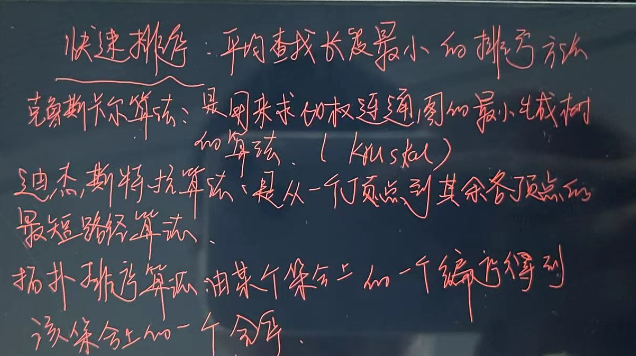 快速排序：平均查找长度最小的排序方法
克鲁斯卡尔算法：是用来求加权连通图的最小生成树
的算法．（Kruskal）
迪杰斯特拉算法：是从一个顶点到其余各顶点的
最短路径算法．
拓扑排序算法 由某个集合上的一个偏序得到
该集合上的一个全序．